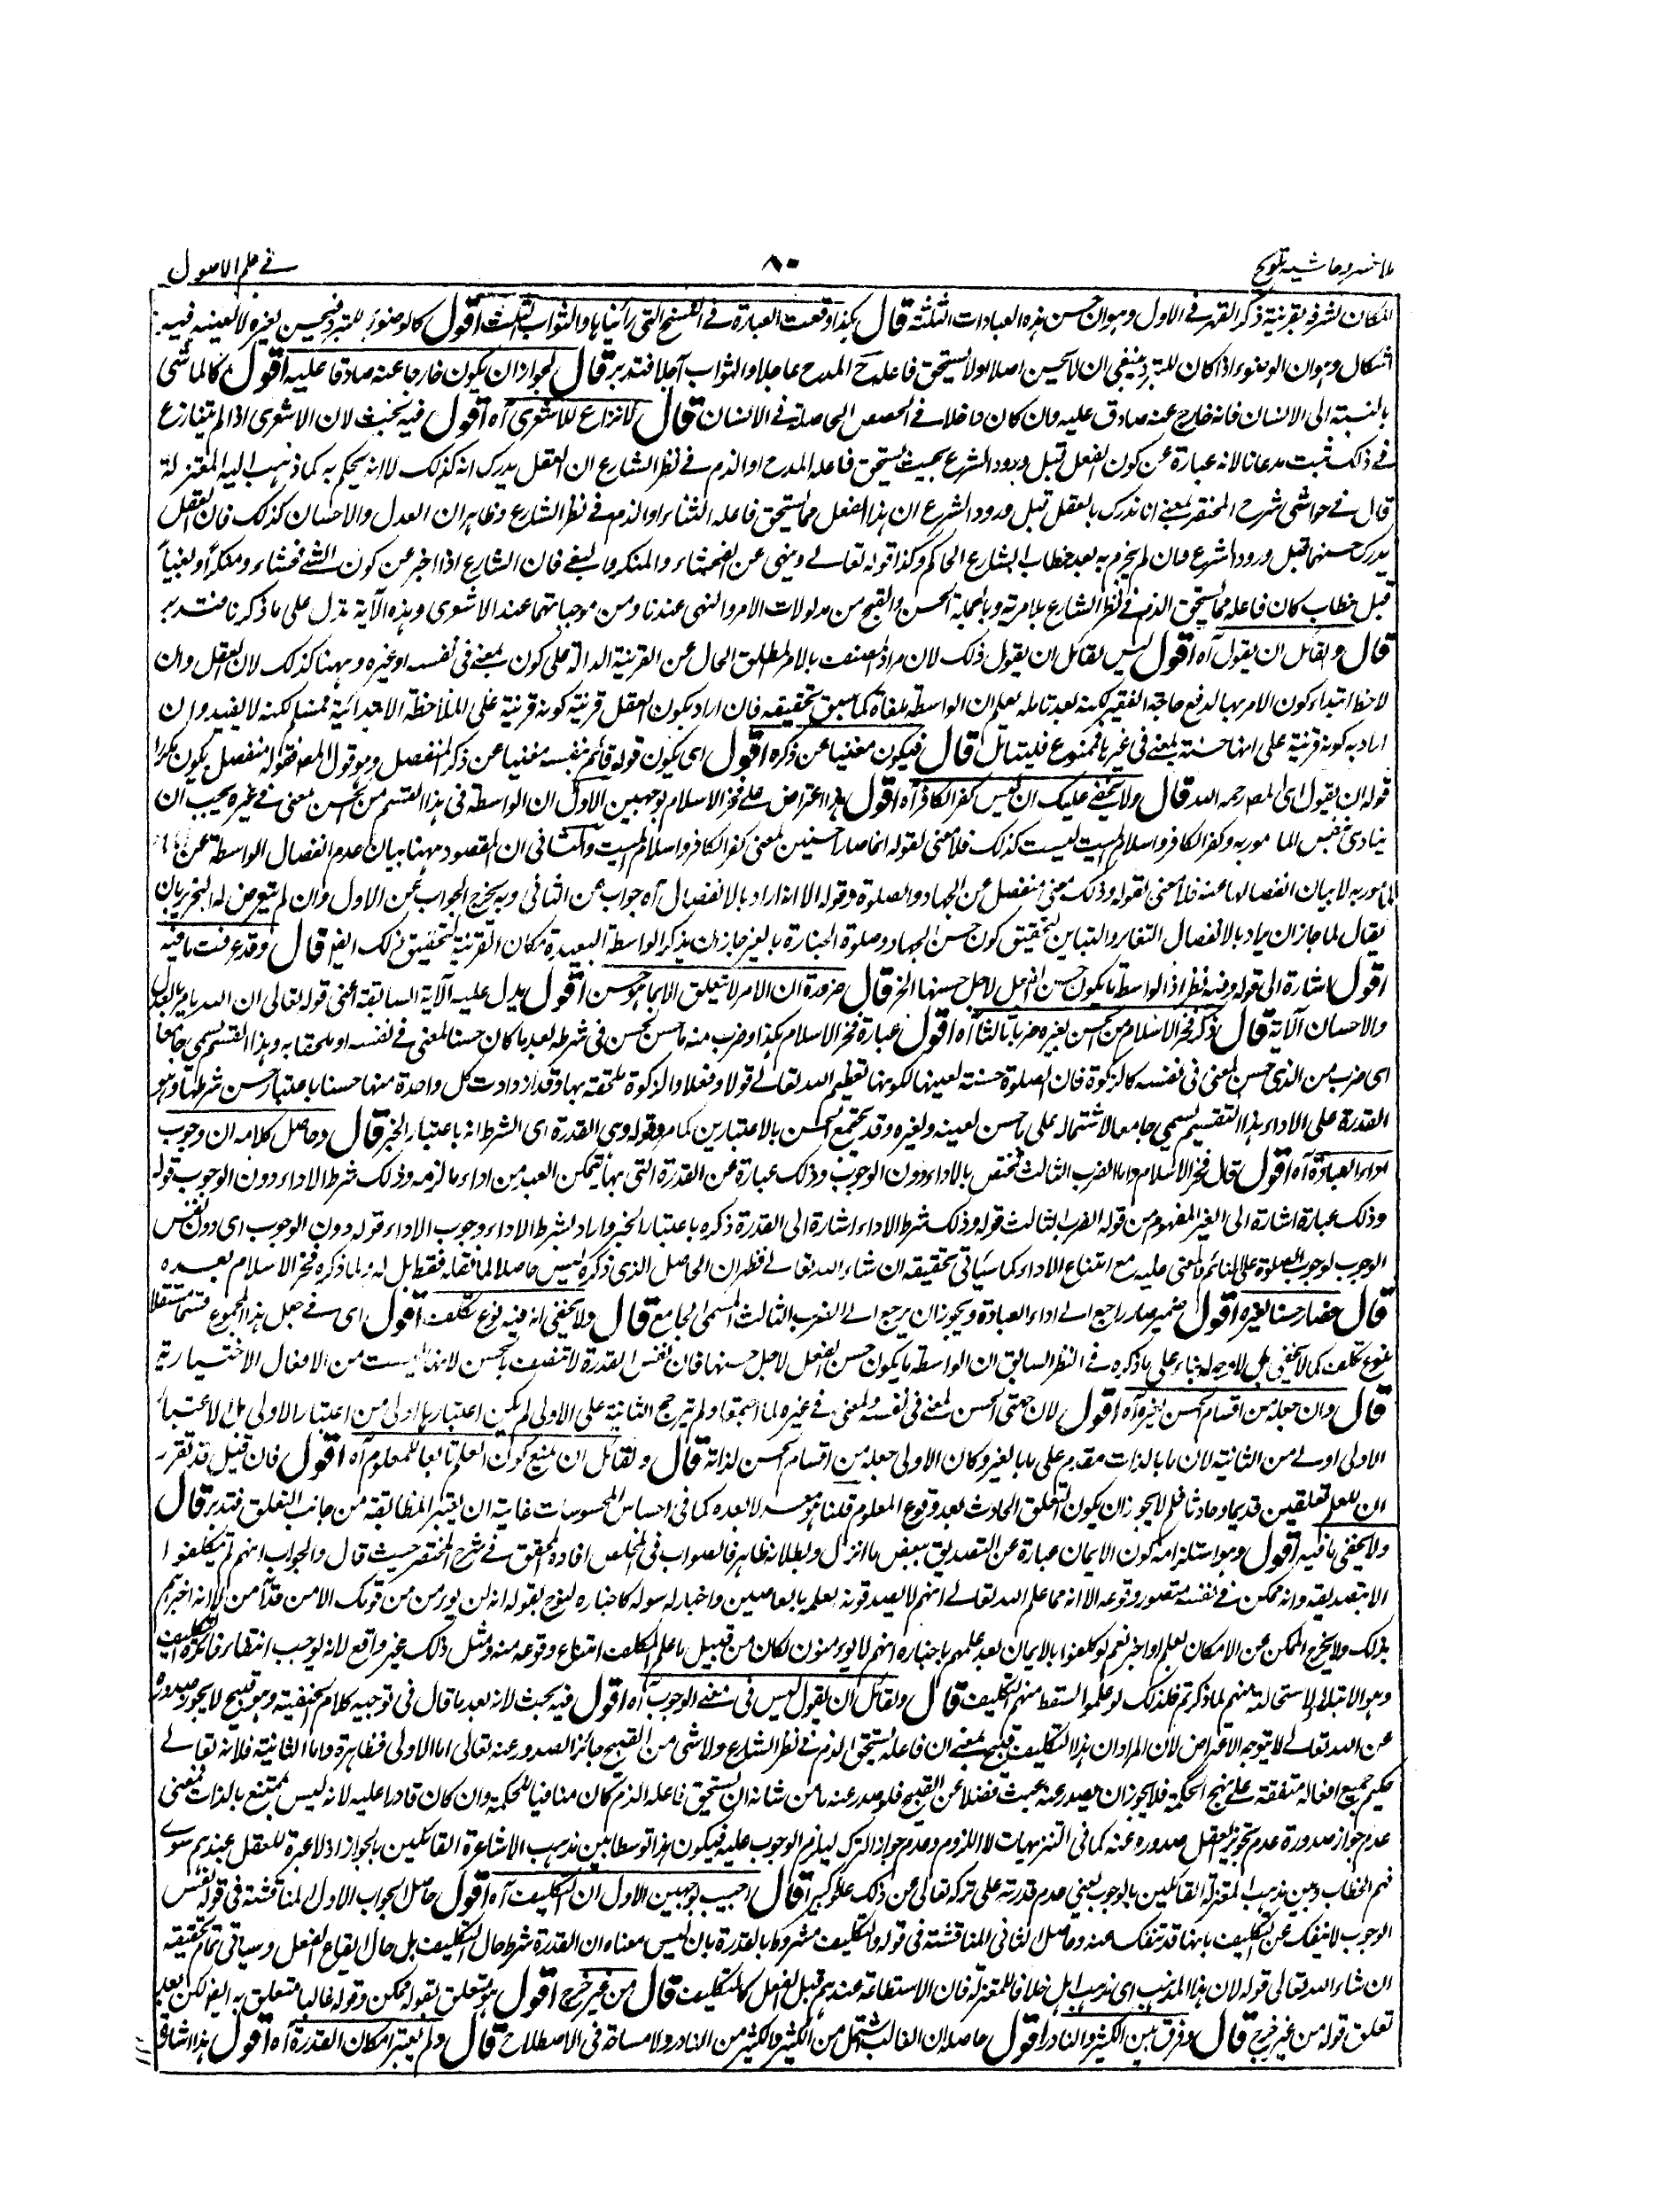 ملا خسرو حاشيه تلويح
٨٠
في علم الاصول
المكان لشرفه بقرينة ذكر القهر في الاول وهو ان حسن هذه العبادات الثلثة قال هكذا وقعت العبارة في النسخ التي رأيناها والثواب الثلث اقول كالوضوء للتبرد فيحسن لغيره لا لعينه فيه
اشكال وهو ان الوضوء اذا كان للتبرد ينبغي ان لا يحسن اصلا ولا يستحق فاعله المدح عاجلا والثواب آجلا فتدبر قال لجواز ان يكون خارجا عنه صادقا عليه اقول كالماشي
بالنسبة الى الانسان فانه خارج عنه صادق عليه وان كان داخلا في الحصص الحاصلة في الانسان قال لا نزاع للاشعرى آه اقول فيه بحث لان الاشعرى اذا لم ينازع
في ذلك ثبت مدعانا لانه عبارة عن كون الفعل قبل ورود الشرع بحيث يستحق فاعله المدح او الذم في نظر الشارع ان العقل يدرك انه كذلك لا انه يحكم به كما ذهب اليه المعتزلة
قال في حواشى شرح المختصر لمعنى انا ندرك بالعقل قبل ورود الشرع ان هذا الفعل مما يستحق فاعله الثناء او الذم في نظر الشارع وظاهر ان العدل والاحسان كذلك فان العقل
يدرك حسنهما قبل ورود الشرع وان لم يجزم به بعد خطاب الشارع الحاكم وكذا قوله تعالى وينهى عن الفحشاء والمنكر والبغي فان الشارع اذا اخبر عن كون الشئ فحشاء ومنكرا وبغيا
قبل خطاب كان فاعله مما يستحق الذم في نظر الشارع بلا مرية وبالجملة الحسن والقبح من مدلولات الامر والنهى عندنا ومن موجباتهما عند الاشعرى وهذه الآية تدل على ما ذكرنا فتدبر
قال ولقائل ان يقول آه اقول ليس لقائل ان يقول ذلك لان مراد المصنف بالامر المطلق الخال عن القرينة الدالة على كون لمعنى في نفسه او غيره وههنا كذلك لان العقل وان
لاحظ ابتداء كون الامر بها لدفع حاجة الفقير لكنه بعد تامله يعلم ان الواسطة ملغاة كما سبق تحقيقه فان اراد بكون العقل قرينة كونه قرينة على الملاحظة الابتدائية فمسلم لكنه لا يفيد وان
اراد به كونه قرينة على انها حسنة لمعنى في غيرها فممنوع فليتامل قال فيكون مغنيا عن ذكره اقول اى يكون قوله قائم بنفسه مغنيا عن ذكر المنفصل وهو قول المصـ فقوله منفصل يكون مكررا
قوله ان يقول اى المصـ رحمه الله قال ولا يخفى عليك ان ليس كفر الكافر آه اقول هذا اعتراض على فخر الاسلام بوجهين الاول ان الواسطة في هذا القسم من الحسن لمعنى في غيره يجب ان
يتادى بنفس المامور به وكفر الكافر واسلام الميت ليست كذلك فلا معنى لقوله انما صارا حسنين لمعنى كفر الكافر واسلام الميت والثانى ان المقصود ههنا بيان عدم انفصال الواسطة عن
المامور به لا بيان انفصالها عنه فلا معنى لقوله وذلك معنى منفصل عن الجهاد والصلوة وقوله الا اذا اراد بالانفصال آه جواب عن الثانى وبه يخرج الجواب عن الاول وان لم يتعرض له النحرير بان
يقال لما جاز ان يراد بالانفصال التغاير والتباين لتحقيق كون حسن الجهاد وصلوة الجنازة بالغير جاز ان يذكر الواسطة البعيدة مكان القريبة لتحقيق ذلك ايضا قال وقد عرفت ما فيه
اقول اشارة الى قوله وفيه نظر اذ الواسطة ما يكون حسن الفعل لاجل حسنها الخ قال ضرورة ان الامر لا يتعلق الا بما هو حسن اقول يدل عليه الآية السابقة اعنى قوله تعالى ان الله يامر بالعدل
والاحسان الآية قال ذكر فخر الاسلام من الحسن لغيره ضربا ثالثا آه اقول عبارة فخر الاسلام هكذا وضرب منه ما حسن لحسن في شرطه بعد ما كان حسنا لمعنى في نفسه او ملحقا به وهذا القسم يسمى جامعا
اى ضرب من الذى حسن لمعنى في نفسه كالزكوة فان الصلوة حسنة لعينها لكونها تعظيم الله تعالى قولا وفعلا والزكوة ملحقة بها وقد ازدادت كل واحدة منها حسنا باعتبار حسن شرطها وهو
القدرة على الاداء وهذا القسيم يسمى جامعا لاشتماله على ما حسن لعينه ولغيره وقد يجتمع الحسن بالاعتبارين كما مر وقوله وهى القدرة اى الشرط انه باعتبار الخبر قال وحاصل كلامه ان وجوب
اداء العبادة آه اقول قال فخر الاسلام واما الضرب الثالث فمختص بالاداء دون الوجوب وذلك عبارة عن القدرة التى بها يتمكن العبد من اداء ما لزمه وذلك شرط الاداء دون الوجوب قوله
وذلك عبارة اشارة الى الغير المفهوم من قوله الضرب الثالث قوله وذلك شرط الاداء اشارة الى القدرة ذكره باعتبار الخبر واراد بشرط الاداء وجوب الاداء وقوله دون الوجوب اى دون نفس
الوجوب لوجوب الصلوة على النائم والمغمى عليه مع امتناع الاداء كما سيأتى تحقيقه ان شاء الله تعالى فظهر ان الحاصل الذى ذكره ليس حاصلا لما نقله فقط بل له ولما ذكره فخر الاسلام بعده
قال فصار حسنا لغيره اقول ضمير صار راجع الى اداء العبادة ويجوز ان يرجع الى الضرب الثالث المسمى الجامع قال ولا يخفى انه فيه نوع تكلف اقول اى في جعل هذا المجموع قسما مستقلا
نوع تكلف كما لا يخفى بل لا وجه له بناء على ما ذكره في النظر السابق ان الواسطة ما يكون حسن الفعل لاجل حسنها فان نفس القدرة لا تتصف بالحسن لانها ليست من الافعال الاختيارية
قال وان جعله من اقسام الحسن لغيره آه اقول لان جهتى الحسن لمعنى في نفسه ولمعنى في غيره لما اجتمعتا ولم يترجح الثانية على الاولى لم يكن اعتبارها اولى من اعتبار الاولى بل الاعتبار
الاولى اولى من الثانية لان ما بالذات مقدم على ما بالغير وكان الاولى جعله من اقسام الحسن لذاته قال ولقائل ان يمنع كون العلم تابعا للمعلوم آه اقول فان قيل قد تقرر
ان للعلم تعلقين قديما وحادثا فلم لا يجوز ان يكون التعلق الحادث بعد وقوع المعلوم قلنا هو معه لا بعده كما في احساس المحسوسات غاية ان يعتبر المطابقة من جانب التعلق فتدبر قال
ولا يخفى ما فيه اقول وهو استلزامه كون الايمان عبارة عن التصديق ببعض ما انزل وبطلانه ظاهر فالصواب في المخلص ما افاده المحقق في شرح المختصر حيث قال والجواب انهم لم يكلفوا
الا بتصديقه وانه ممكن في نفسه متصور وقوعه الا انه مما علم الله تعالى انهم لا يصدقونه لعلمه بالعاصين واخباره لرسوله كاخباره لنوح بقوله انه لن يؤمن من قومك الا من قد آمن لا انه اخبرهم
بذلك ولا يخرج الممكن عن الامكان بعلم او اخبر نعم لو كلفوا بالايمان بعد علمهم باخباره انهم لا يؤمنون لكان من قبيل ما علم المكلف امتناع وقوعه منه ومثل ذلك غير واقع لانه يوجب انتفاء فائدة التكليف
وهو الابتلاء لاستحالته منهم لما ذكرتم فلذلك لو علموا لسقط منهم التكليف قال ولقائل ان يقول ليس في معنى الوجوب آه اقول فيه بحث لانه بعد ما قال في توجيه كلام الحنفية وهو قبيح لا يجوز صدوره
عن الله تعالى لا يتوجه الاعتراض لان المراد ان هذا التكليف قبيح بمعنى ان فاعله يستحق الذم في نظر الشارع ولا شئ من القبيح جائز الصدور عنه تعالى اما الاولى فظاهرة واما الثانية فلانه تعالى
حكيم جميع افعاله متفقة على منهج الحكمة فلا يجوز ان يصدر عنه عبث فضلا عن القبيح فلو صدر عنه ما من شانه ان يستحق فاعله الذم كان منافيا للحكمة وان كان قادرا عليه لانه ليس بممتنع بالذات فمعنى
عدم جواز صدوره عدم تجويز العقل صدوره عنه كما في التنزيهات لا اللزوم وعدم جواز الترك ليلزم الوجوب عليه فيكون هذا توسطا بين مذهب الاشاعرة القائلين بالجواز اذ لا عبرة للعقل عندهم سوى
فهم الخطاب وبين مذهب المعتزلة القائلين بالوجوب بمعنى عدم قدرته على تركه تعالى عن ذلك علوا كبيرا قال اجيب بوجهين الاول ان التكليف آه اقول حاصل الجواب الاول المناقشة في قوله نفس
الوجوب لا ينفك عن التكليف بانها قد تنفك عنه وحاصل الثانى المناقشة في قوله والتكليف مشروط بالقدرة بان ليس معناه ان القدرة شرط حال التكليف بل حال ايقاع الفعل وسيأتى تمام تحقيقه
ان شاء الله تعالى قوله لان هذا المذهب اى مذهب اهل خلافا للمعتزلة فان الاستطاعة عندهم قبل الفعل كالتكليف قال من غير حرج اقول هو متعلق بقوله ممكن وقوله غالبا متعلق به ايضا لكن بعد
تعلق قوله من غير حرج قال وفرق بين الكثير والنادر اقول حاصله ان الغالب يشتمل من الكثير والكثير من النادر ولا مساحة في الاصطلاح قال ولم يعتبر امكان القدرة آه اقول هذا اشارة